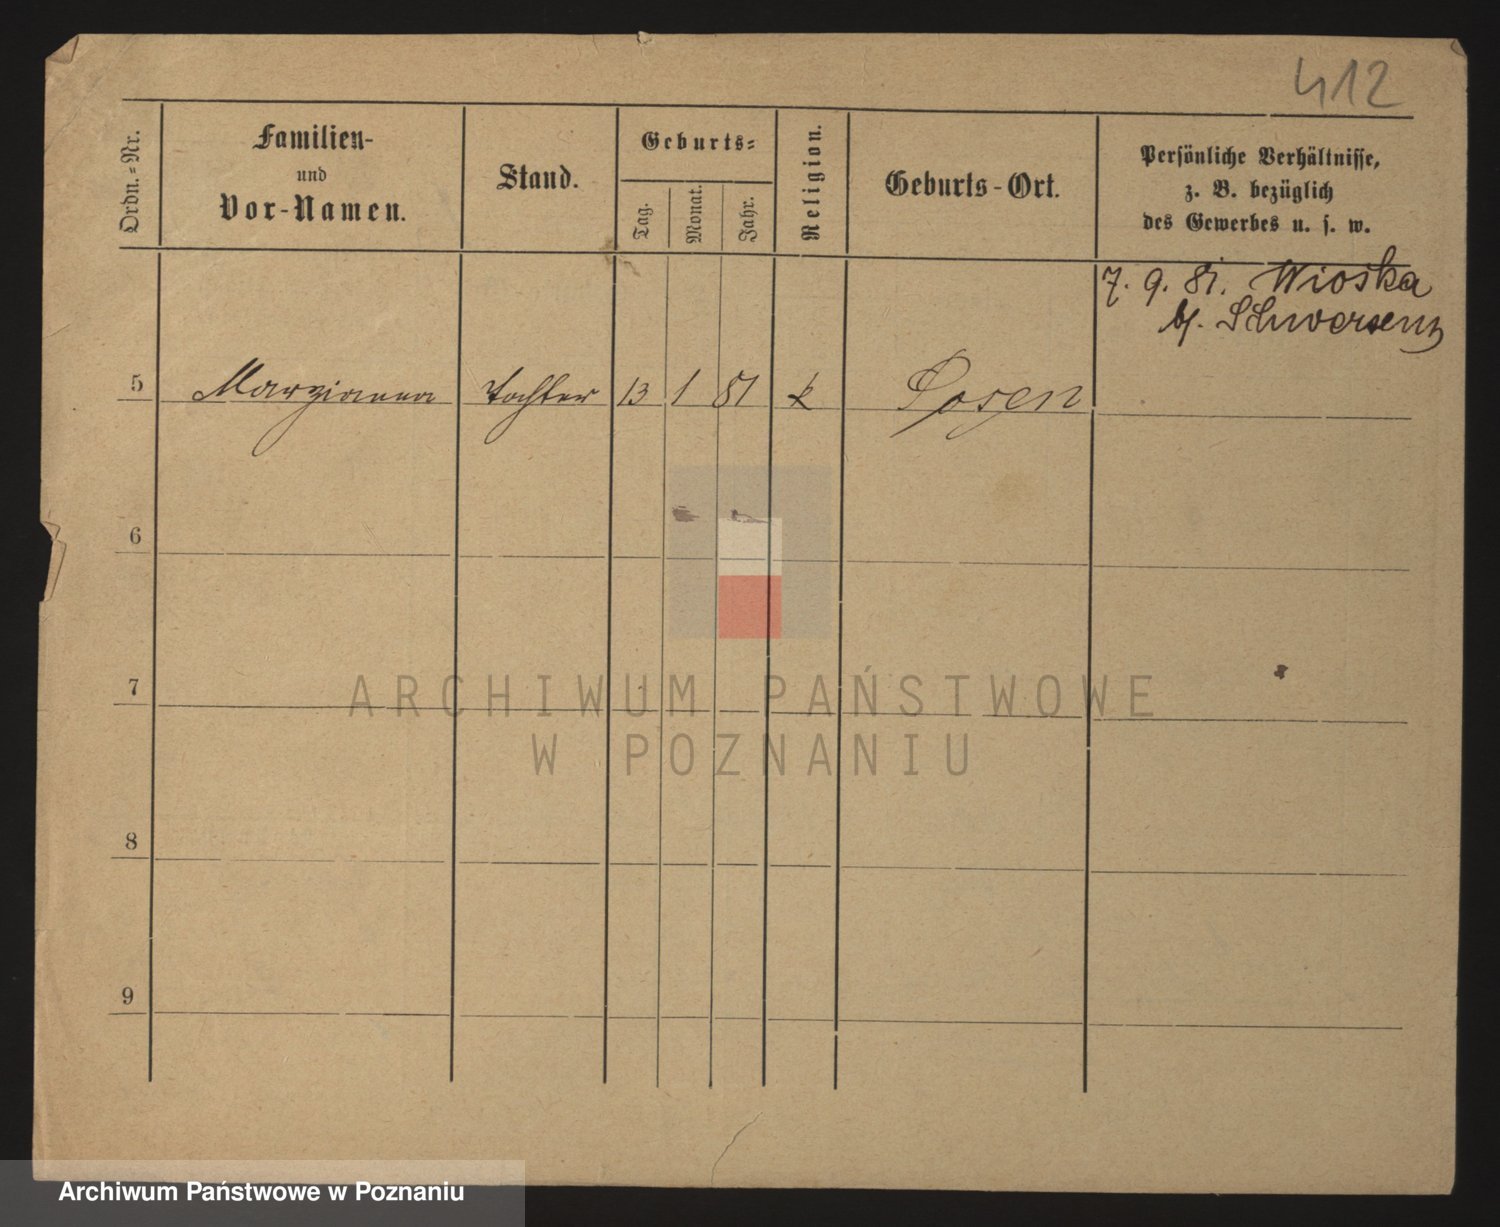 412
Ordn.-Nr.
Familien-
und
Vor-Namen.
Stand.
Geburts-
Tag.
Monat.
Jahr.
Religion.
Geburts-Ort.
Persönliche Verhältnisse,
z. B. bezüglich
des Gewerbes u. s. w.
7. 9. 81. Wioska
b/. Schwersenz
5 Marzianna Tochter 13 1 81 k Posen
6
7
8
9
ARCHIWUM PAŃSTWOWE
W POZNANIU
Archiwum Państwowe w Poznaniu